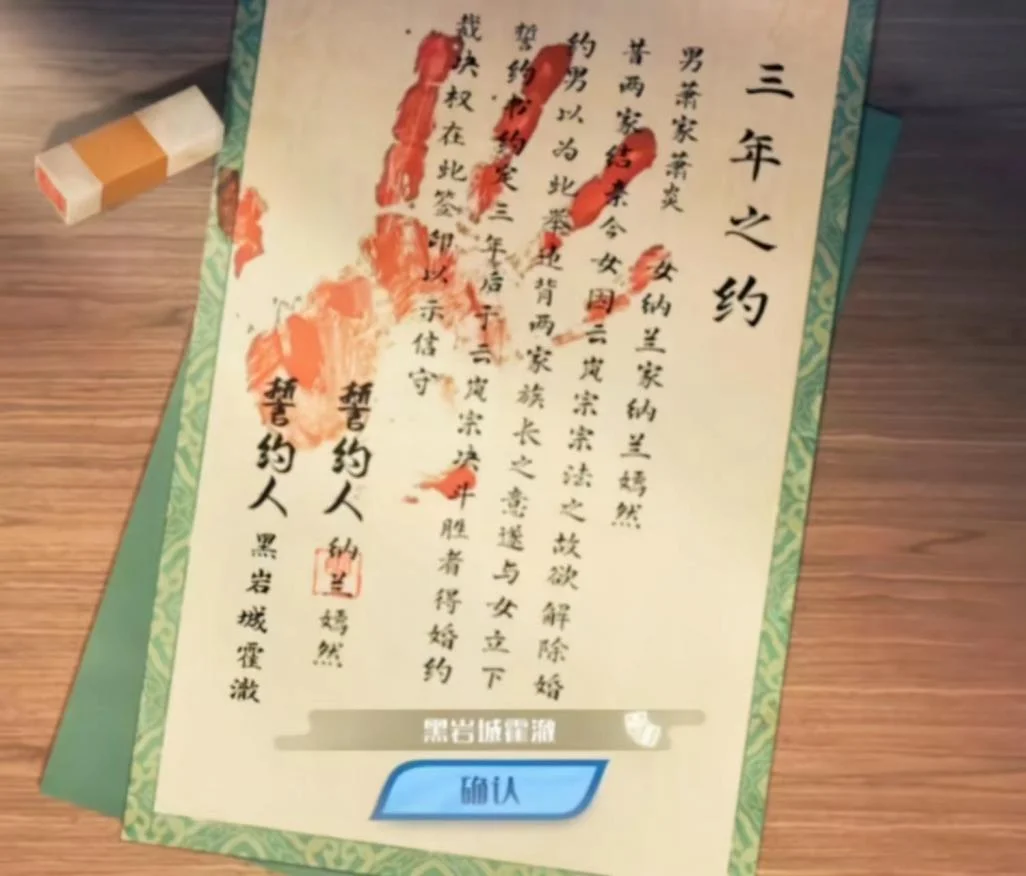 三年之约
男萧家萧炎
女纳兰家纳兰嫣然
昔两家结亲今女因云岚宗宗法之故欲解除婚
约男以为此举违背两家族长之意遂与女立下
誓约书约定三年后于云岚宗决斗胜者得婚约
裁决权在此签印以示信守
誓约人纳兰嫣然
誓约人黑岩城霍澈
黑岩城霍澈
确认